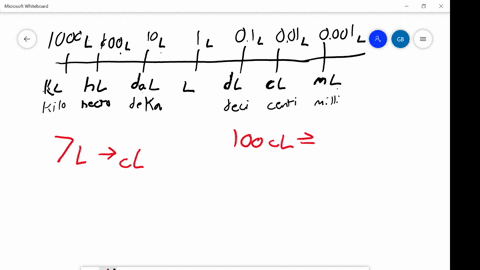 Microsoft Whiteboard
GB
1000L 100L 10L 1L 0.1L 0.01L 0.001L
KL hL daL L dL cL mL
Kilo hecto deka deci centi milli
7L → cL
100cL =